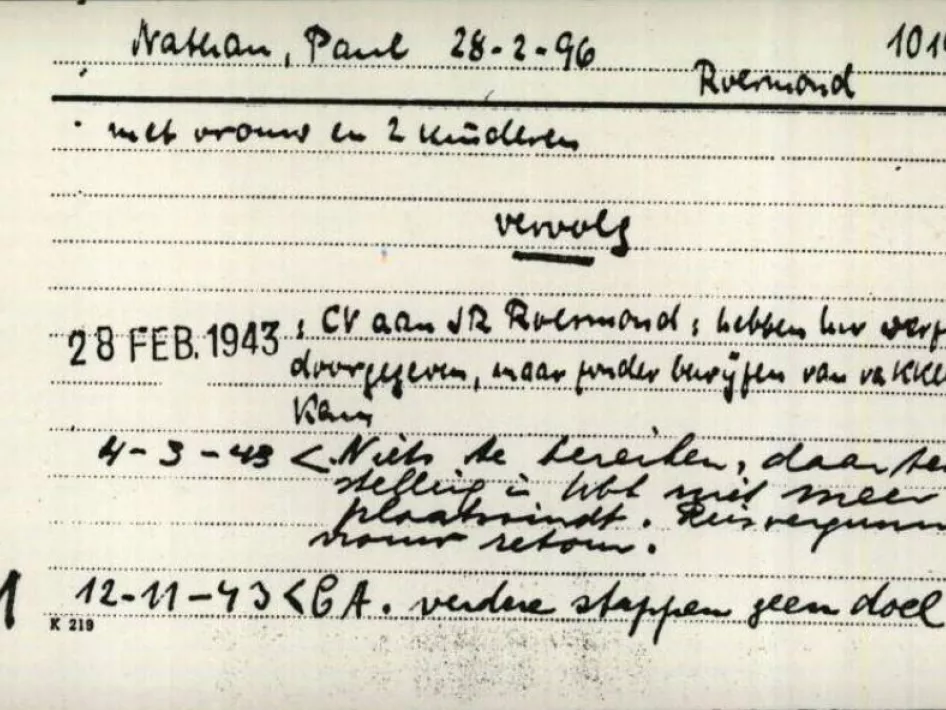 Nathan, Paul 28-2-96 101
Roermond
met vrouw en 2 kinderen
vervolg
28 FEB. 1943 : CV aan JR Roermond : hebben
doorgegeven, maar zonder bewijzen van
4-3-43 < Niets te bereiken, daar te
stelling in niet meer
plaatsvindt.
vrouw retour.
12-11-43 < CA. verdere stappen geen doel
K 219